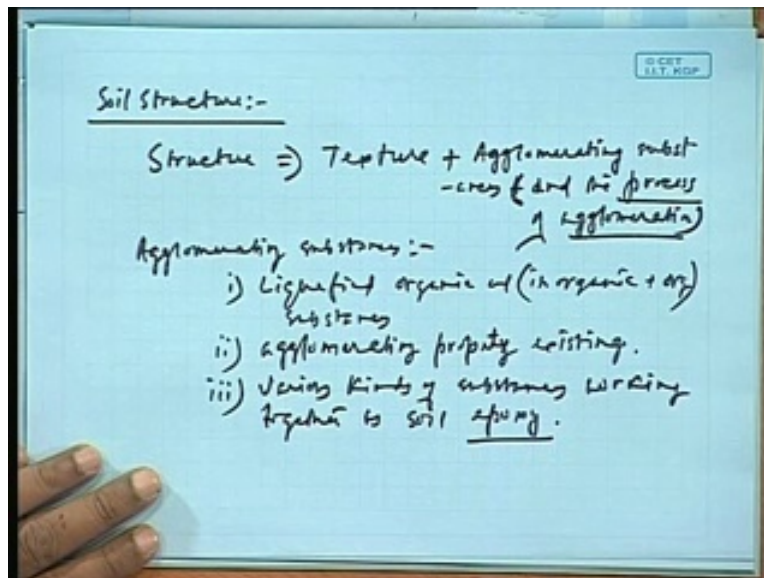 © CET
I.I.T. KGP
Soil Structure:-
Structure ⇒ Texture + Agglomerating subst
-ances ( and the process
of agglomeration)
Agglomerating substances:-
i) Liquefied organic and (inorganic + org)
substances
ii) agglomerating property existing.
iii) Various kinds of substances working
together as soil epoxy.